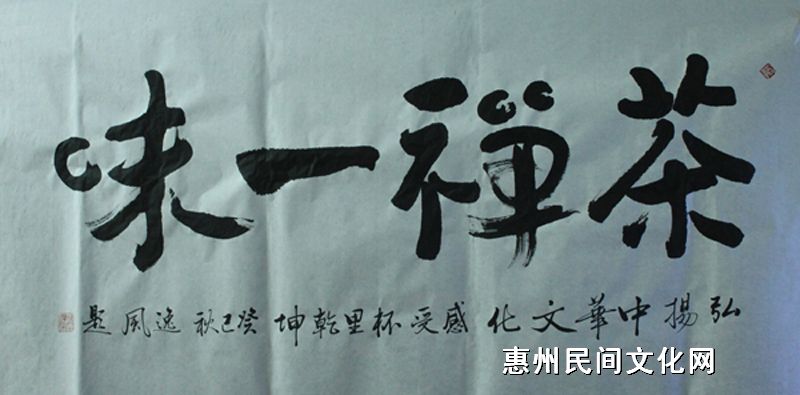 茶禅一味
弘揚中華文化感受杯里乾坤癸巳秋逸風題
惠州民间文化网